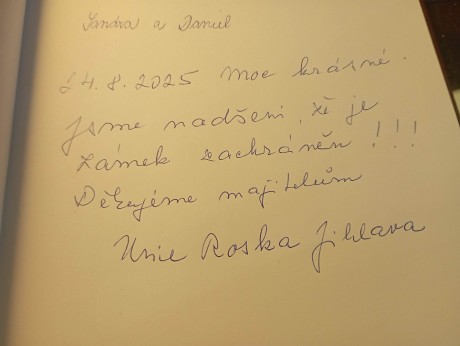 Sandra a Daniel
24.8.2025 Moc krásné.
Jsme nadšeni, že je
zámek zachráněn!!!
Děkujeme majitelům
Unie Roska Jihlava